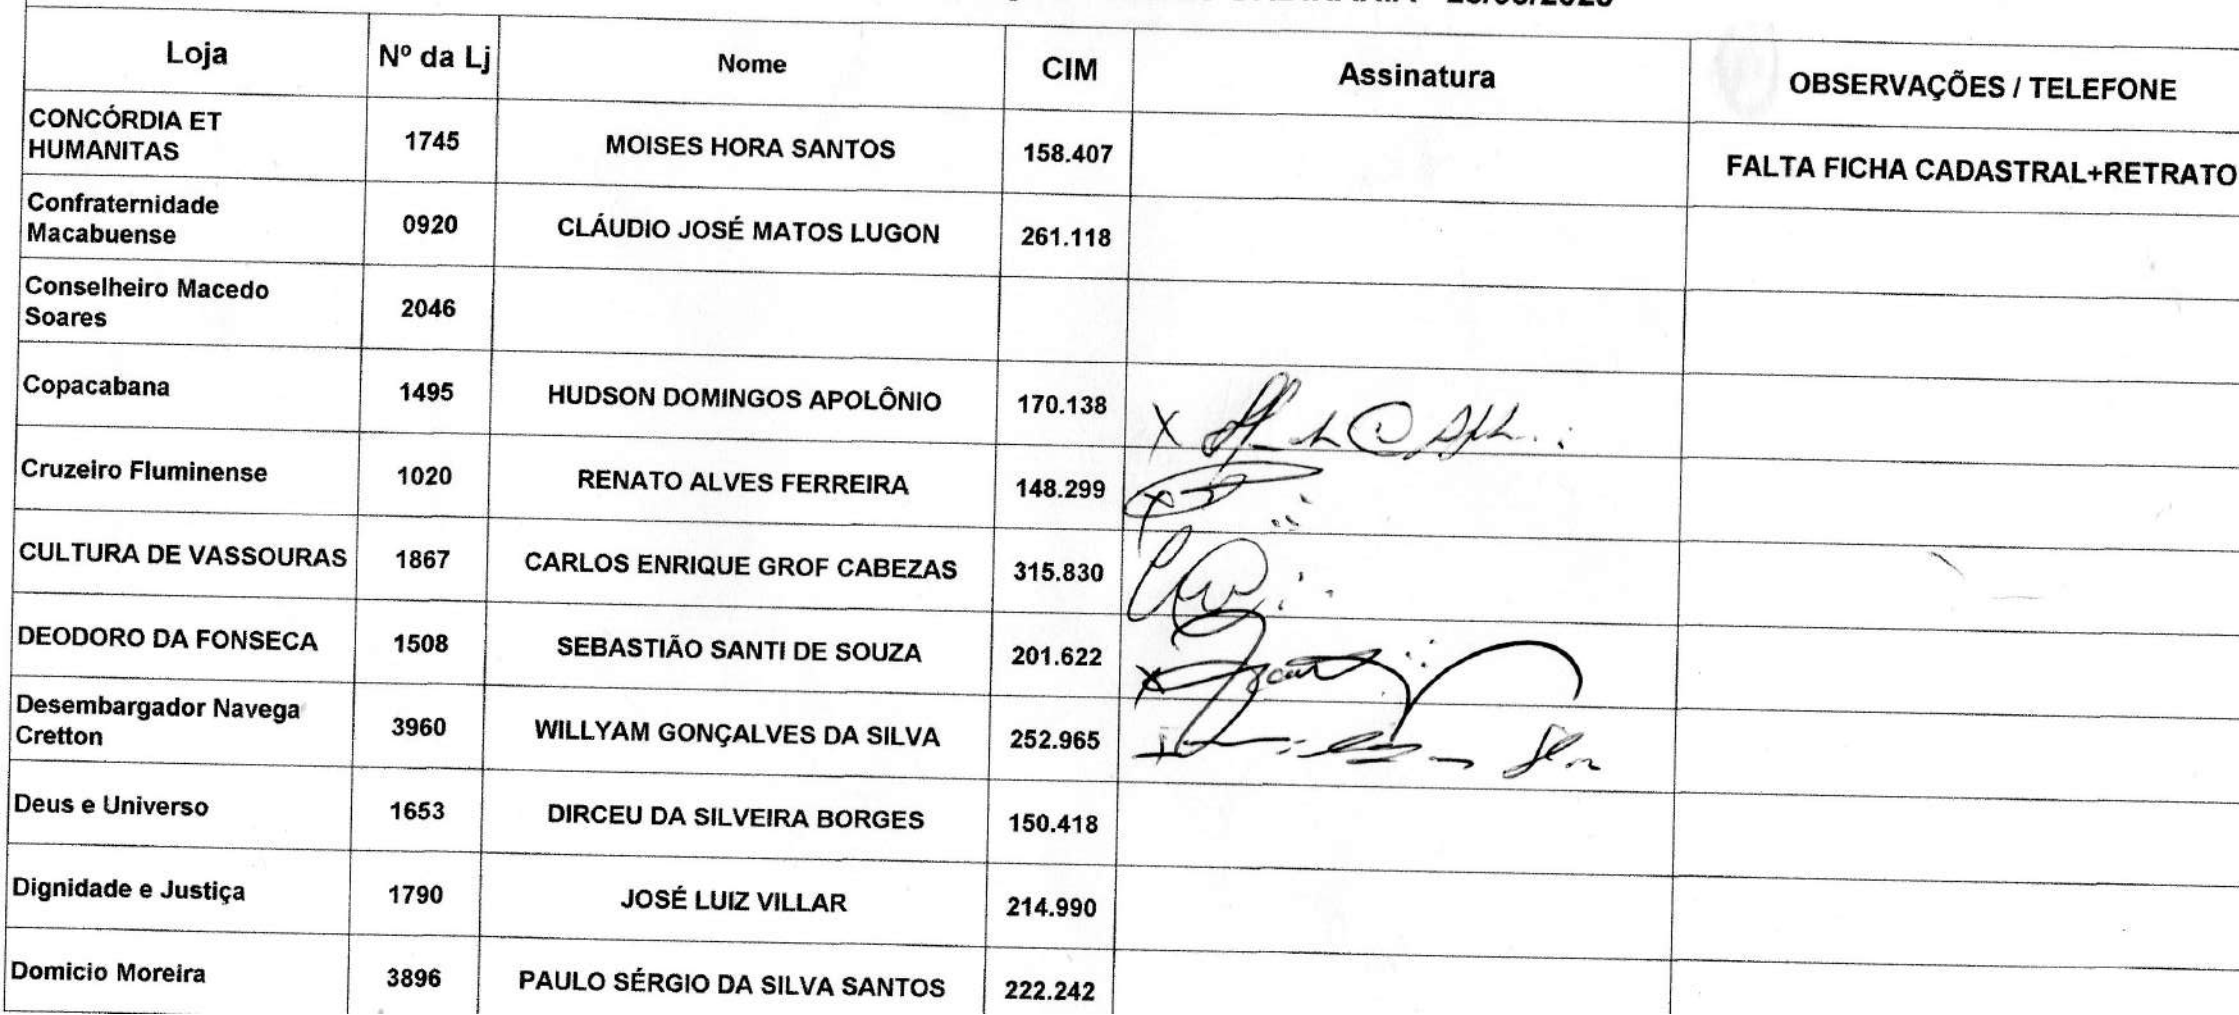 Loja Nº da Lj Nome CIM Assinatura OBSERVAÇÕES / TELEFONE
CONCÓRDIA ET
HUMANITAS 1745 MOISES HORA SANTOS 158.407 FALTA FICHA CADASTRAL+RETRATO
Confraternidade
Macabuense 0920 CLÁUDIO JOSÉ MATOS LUGON 261.118
Conselheiro Macedo
Soares 2046
Copacabana 1495 HUDSON DOMINGOS APOLÔNIO 170.138
Cruzeiro Fluminense 1020 RENATO ALVES FERREIRA 148.299
CULTURA DE VASSOURAS 1867 CARLOS ENRIQUE GROF CABEZAS 315.830
DEODORO DA FONSECA 1508 SEBASTIÃO SANTI DE SOUZA 201.622
Desembargador Navega
Cretton 3960 WILLYAM GONÇALVES DA SILVA 252.965
Deus e Universo 1653 DIRCEU DA SILVEIRA BORGES 150.418
Dignidade e Justiça 1790 JOSÉ LUIZ VILLAR 214.990
Domicio Moreira 3896 PAULO SÉRGIO DA SILVA SANTOS 222.242